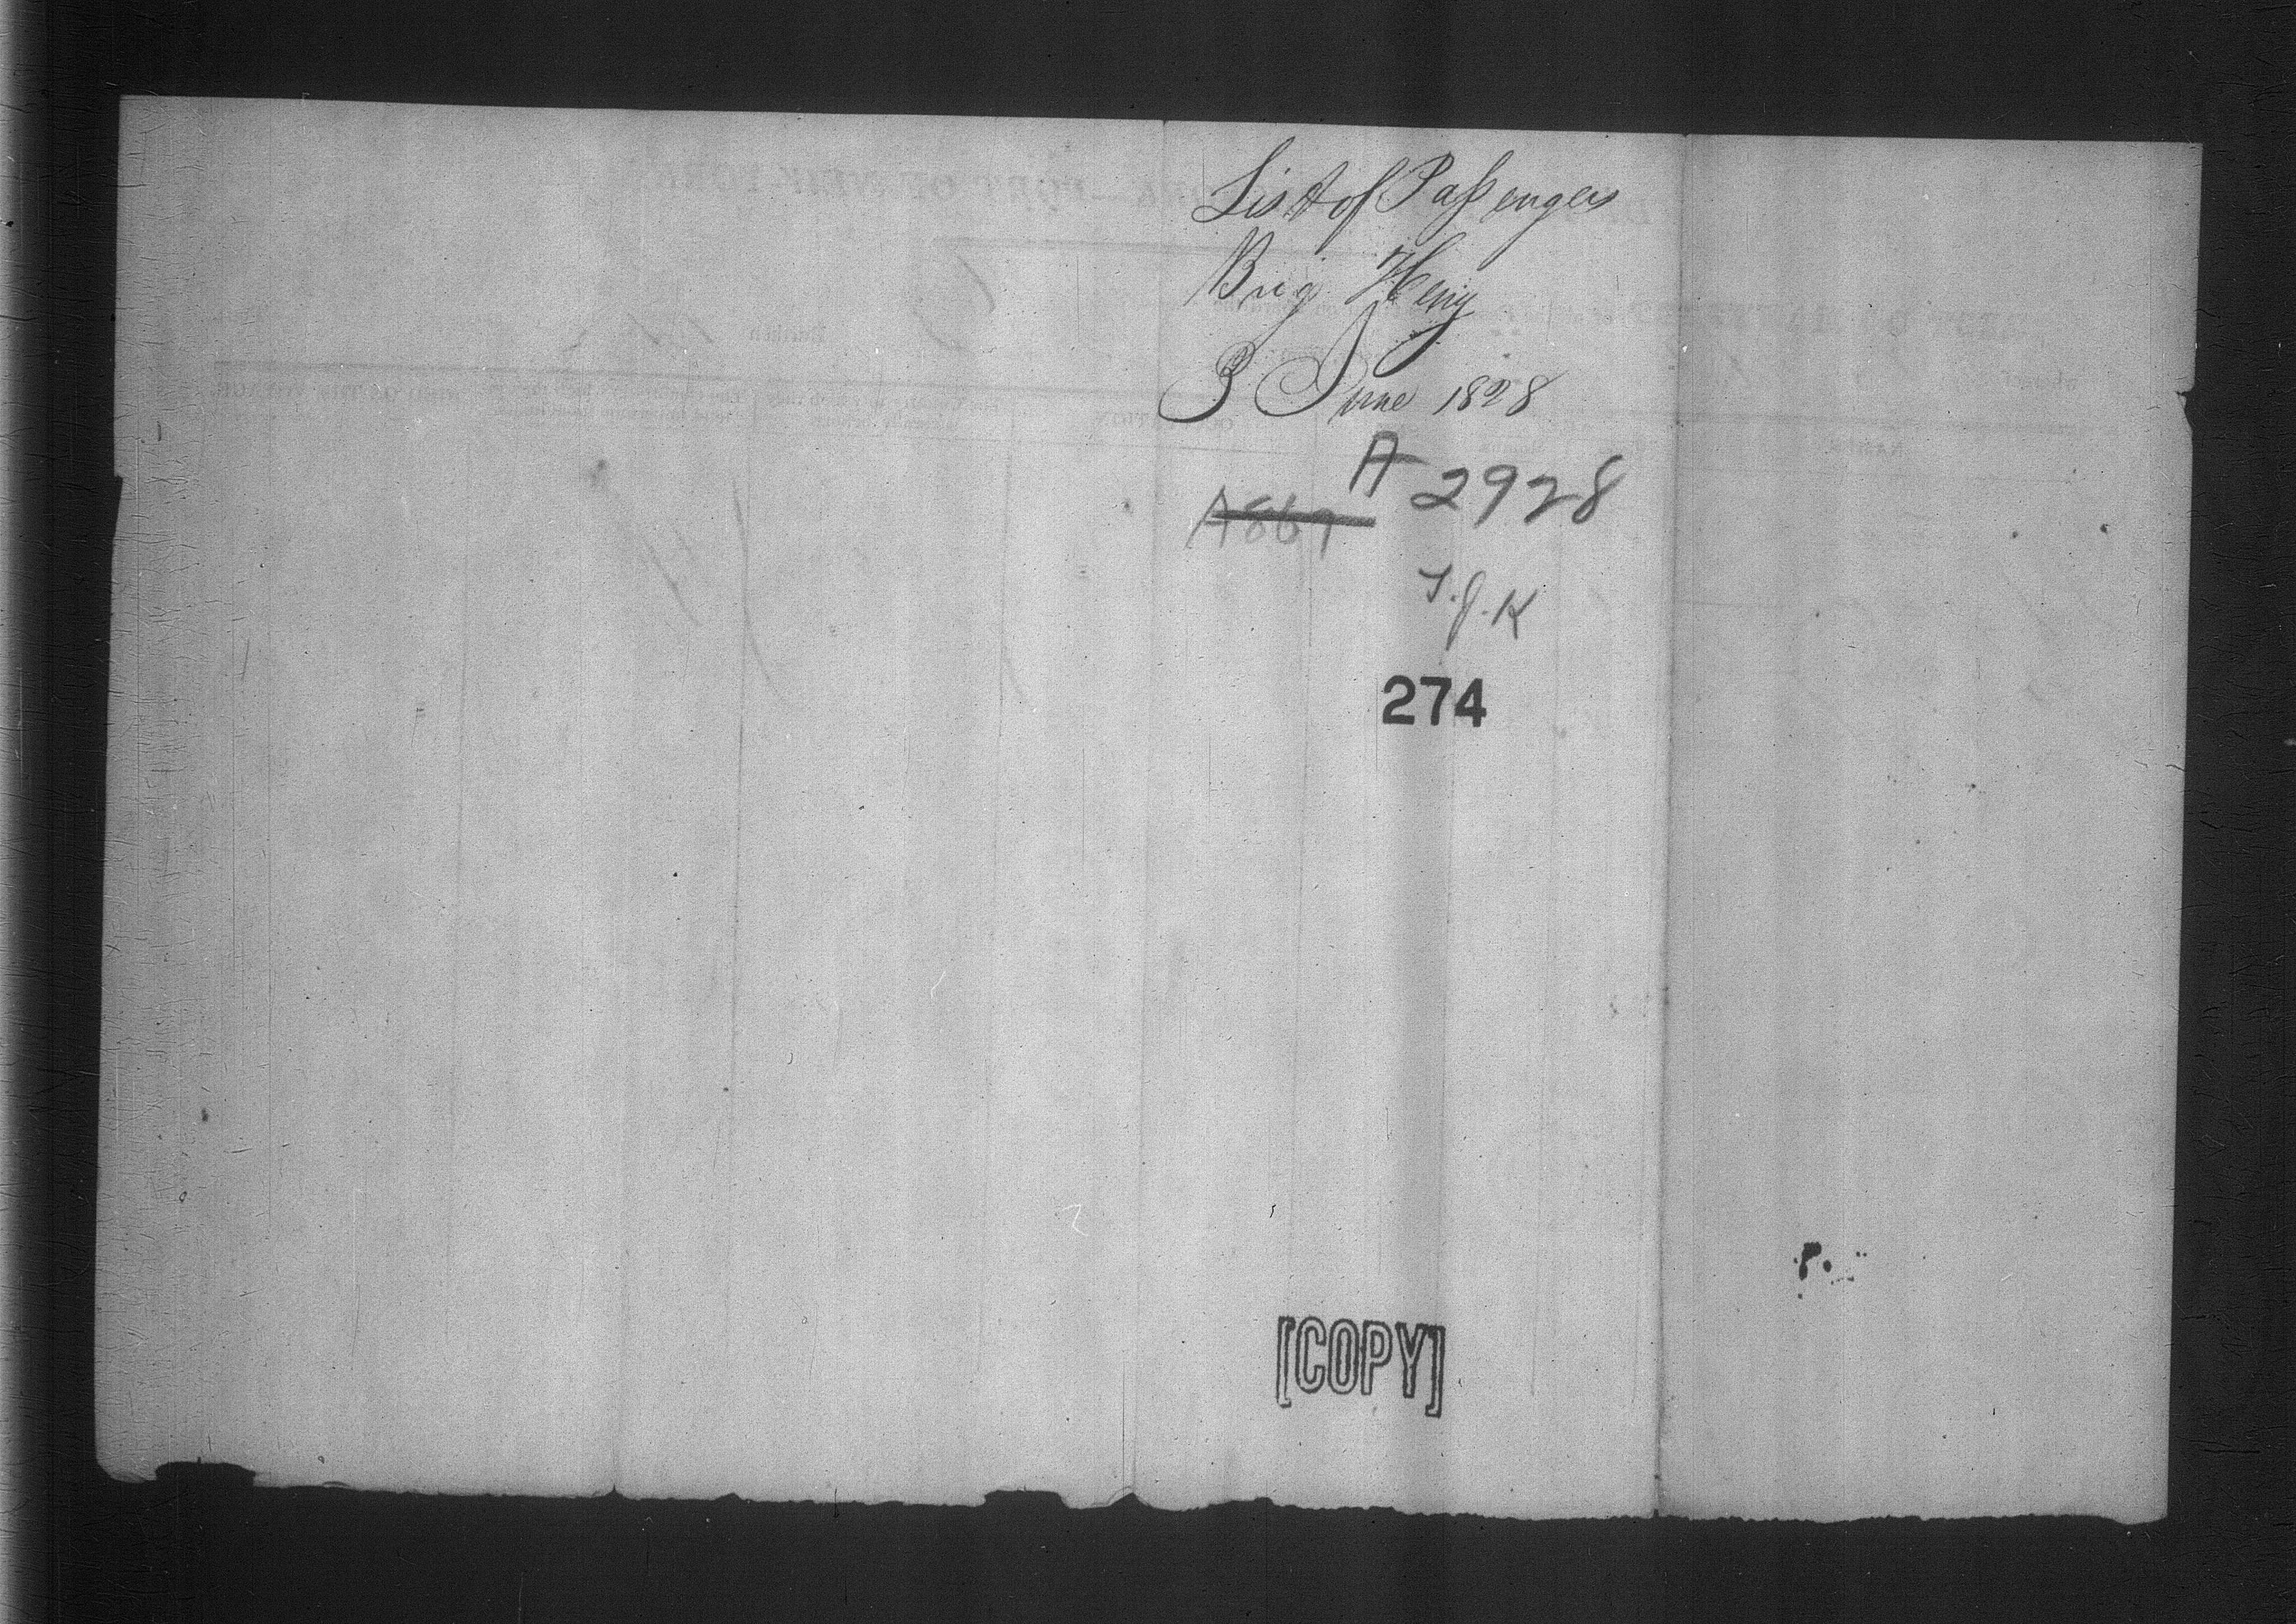 List of Passengers
Brig Heny
3 June 1828
A 2928
A867
T.J.K
274
[COPY]